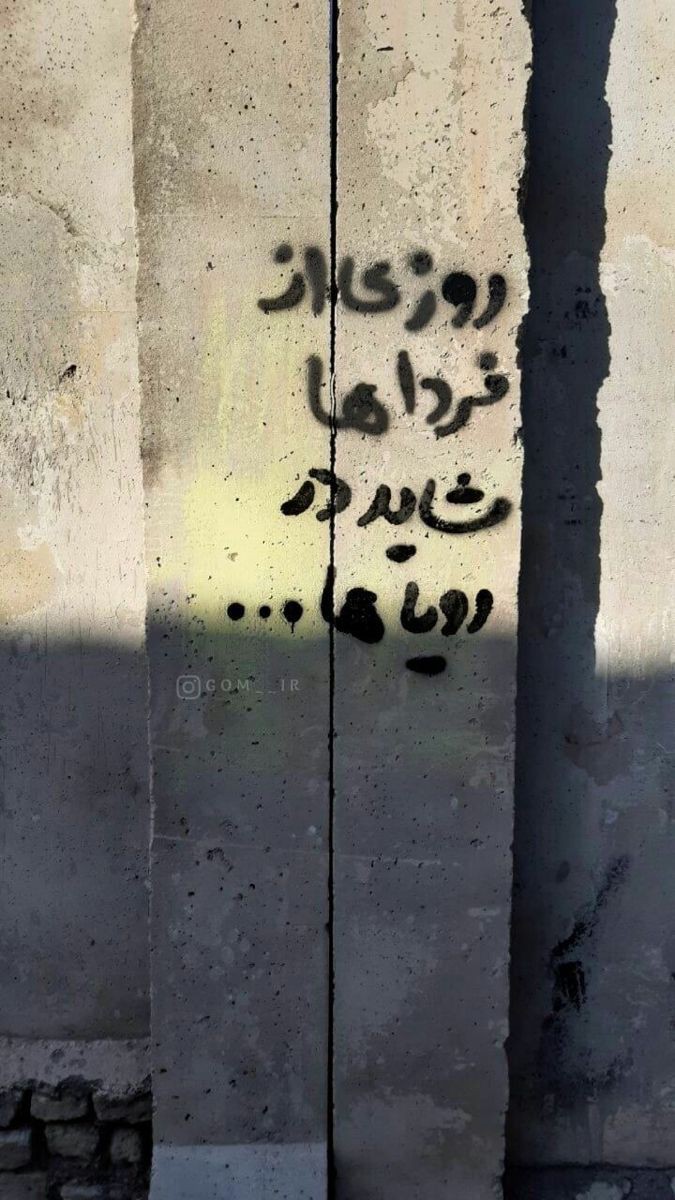 روزی از
فردا ها
شاید در
رویا ها...
GOM__IR